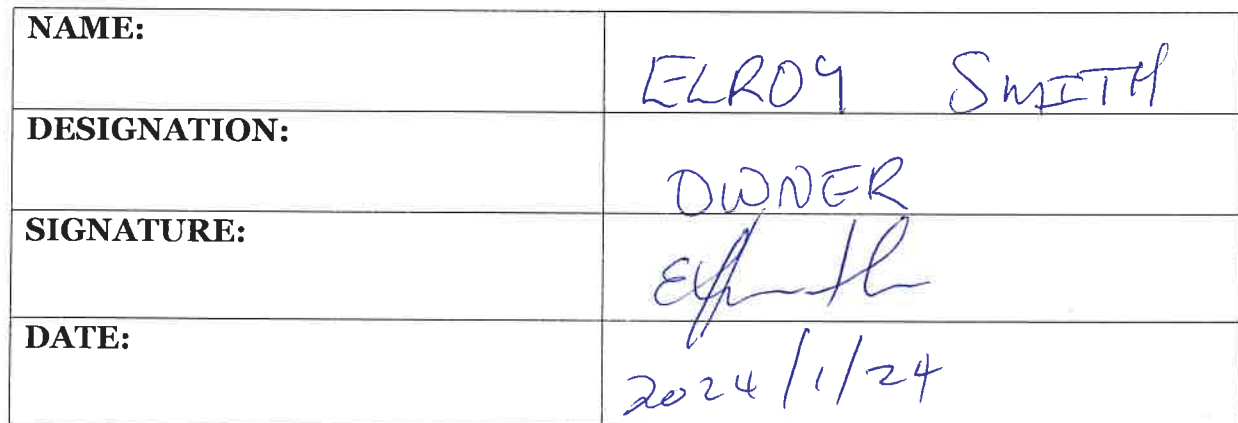 NAME:
ELROY SMITH
DESIGNATION:
OWNER
SIGNATURE:
DATE:
2024/1/24